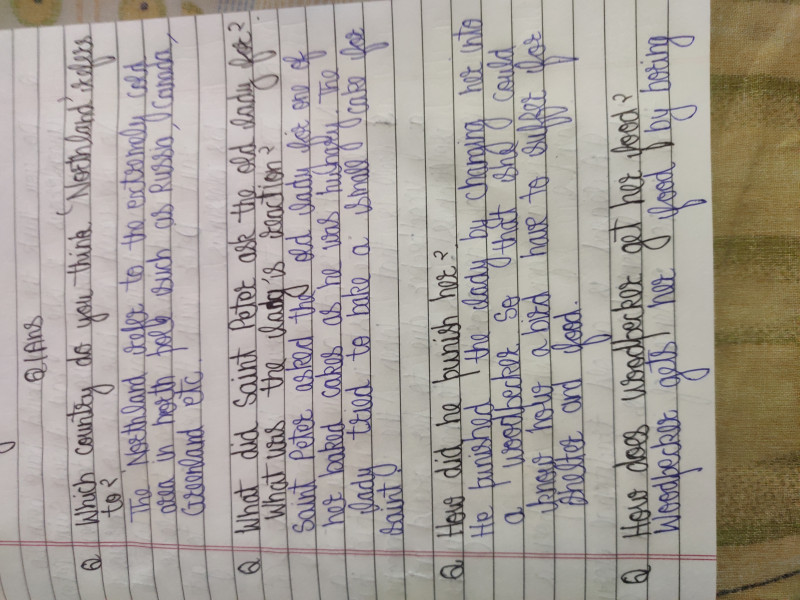 Q/Ans
Q Which country do you think 'Northland' refers
to?
The Northland refer to the extremely cold
area in north pole such as Russia, Canada,
Greenland etc.
Q What did Saint Peter ask the old lady for?
What was the lady's reaction?
Saint Peter asked the old lady for one of
her baked cakes as he was hungry. The
lady tried to bake a small cake for
saint.
Q How did he punish her?
He punished the lady by changing her into
a woodpecker. So that she could
know how a bird have to suffer for
shelter and food.
Q How does woodpecker get her food?
Woodpecker gets her food by boring